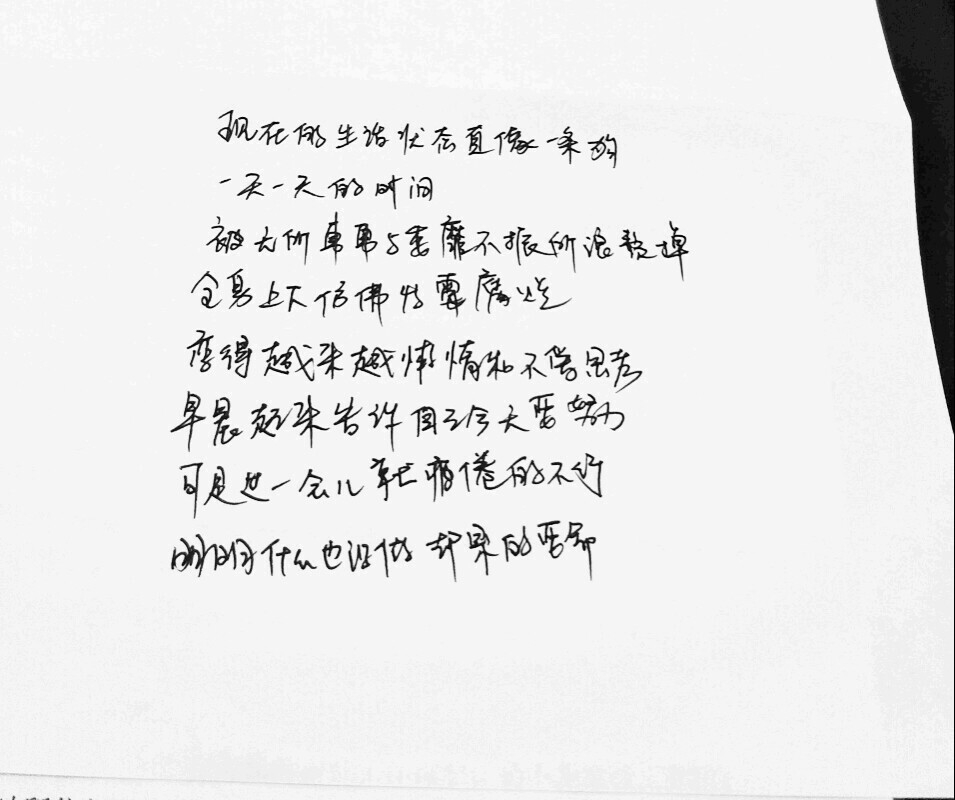 现在的生活状态真像一条狗
一天一天的时间
被无所事事与萎靡不振所浪费掉
全身上下仿佛发霉腐烂
变得越来越懒惰和不思考
早晨起来告诉自己今天要努力
可是过一会儿就疲倦的不行
明明什么也没做却累的要命